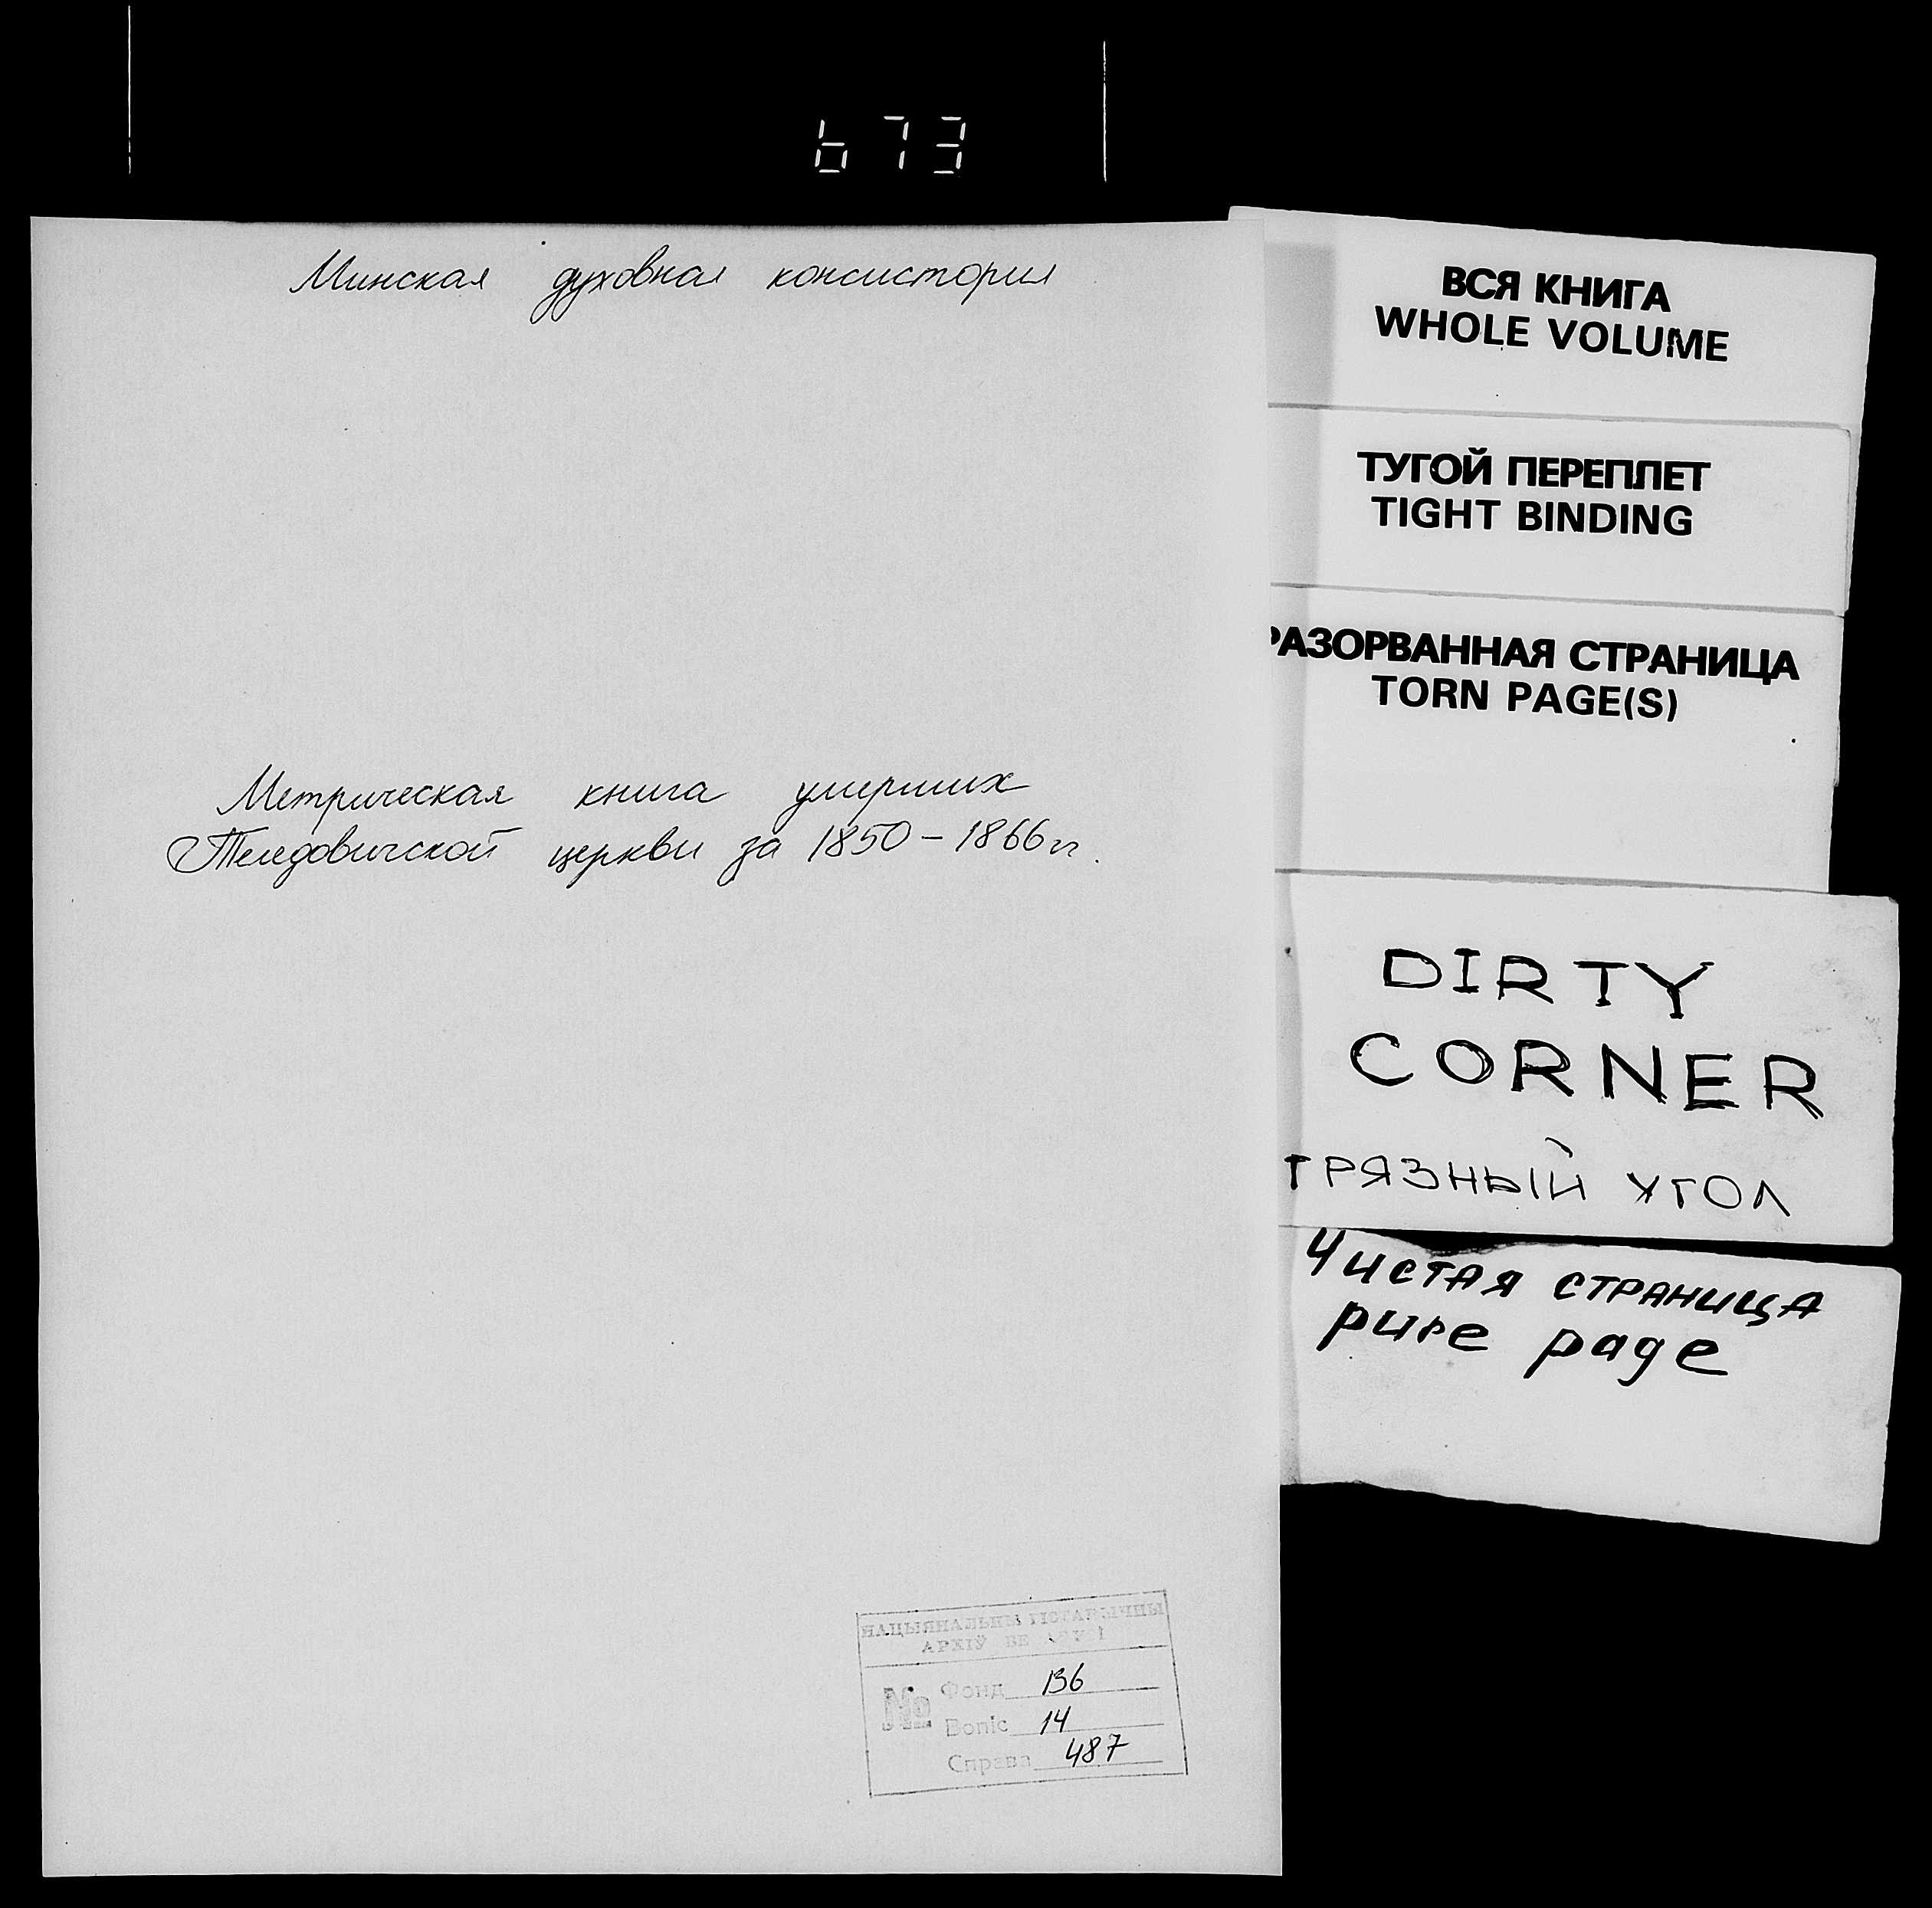 673
Минская духовная консистория
Метрическая книга умерших
Телядовичской церкви за 1850 – 1866 гг.
НАЦЫЯНАЛЬНЫ ГІСТАРЫЧНЫ
АРХІЎ БЕ
№
Фонд 136
Вопіс 14
Справа 487
ВСЯ КНИГА
WHOLE VOLUME
ТУГОЙ ПЕРЕПЛЕТ
TIGHT BINDING
РАЗОРВАННАЯ СТРАНИЦА
TORN PAGE(S)
DIRTY
CORNER
ГРЯЗНЫЙ УГОЛ
Чистая страница
pure page